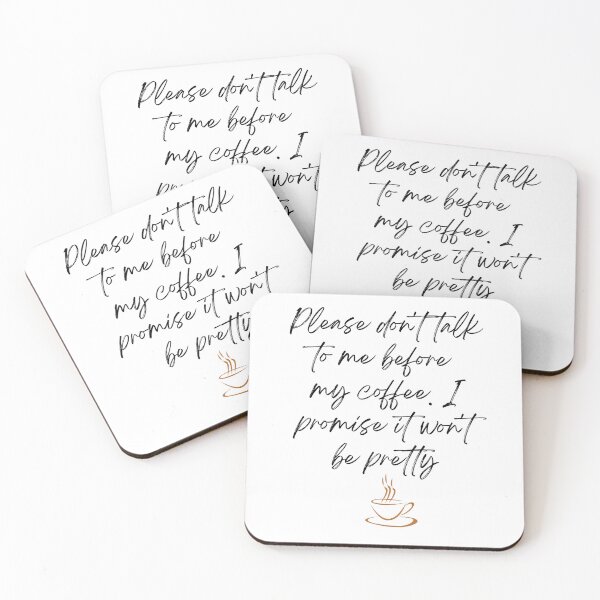 Please don't talk
to me before
my coffee. I
won't
Please don't talk
to me before
my coffee. I
promise it won't
be pretty
Please don't talk
to me before
my coffee. I
promise it won't
be pretty
Please don't talk
to me before
my coffee. I
promise it won't
be pretty